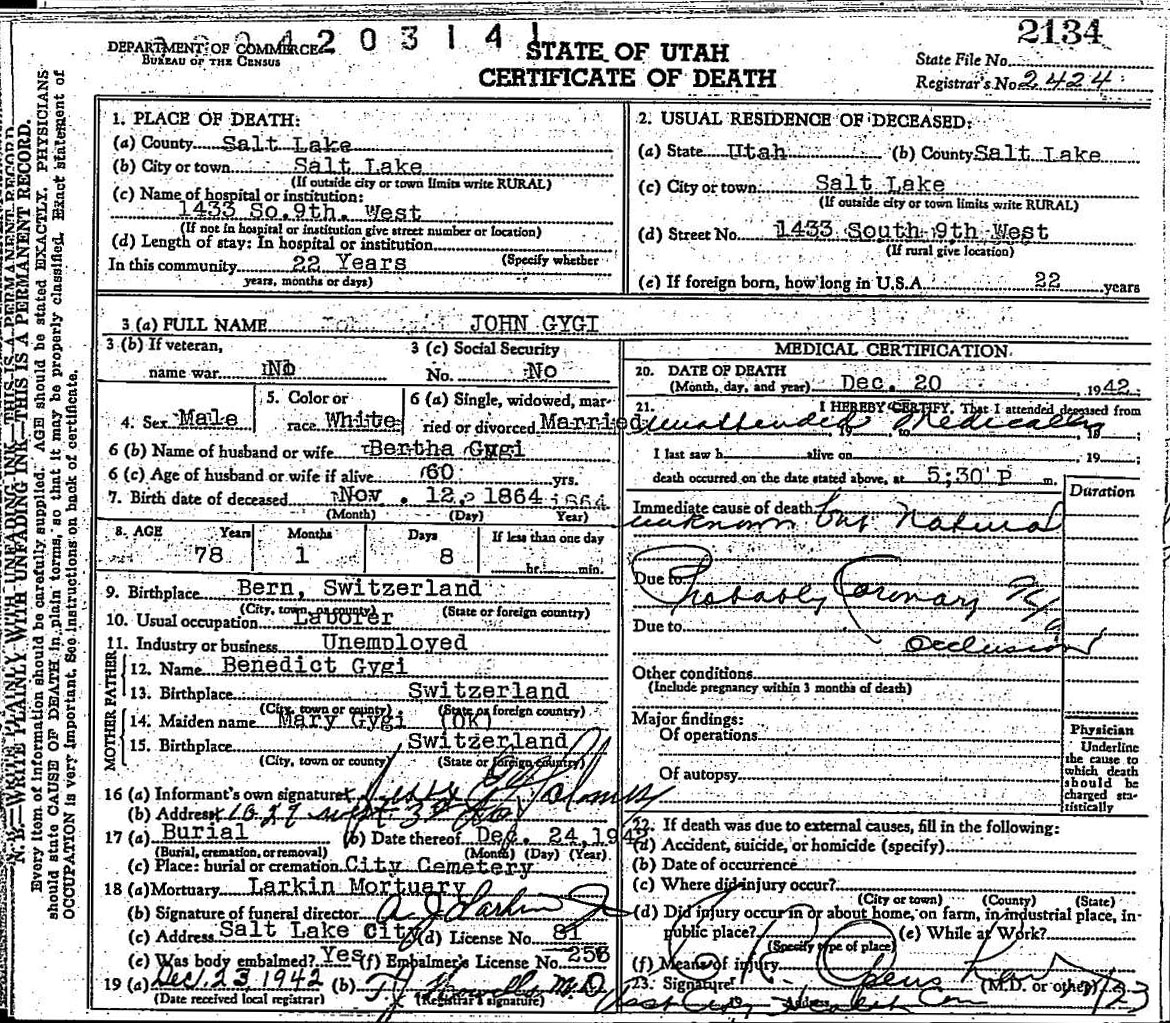 2134
4203141
DEPARTMENT OF COMMERCE
BUREAU OF THE CENSUS
STATE OF UTAH
CERTIFICATE OF DEATH
State File No.
Registrar's No. 2424
N. B.—WRITE PLAINLY WITH UNFADING INK—THIS IS A PERMANENT RECORD.
Every item of information should be carefully supplied. AGE should be stated EXACTLY. PHYSICIANS
should state CAUSE OF DEATH in plain terms, so that it may be properly classified. Exact statement of
OCCUPATION is very important. See instructions on back of certificate.
1. PLACE OF DEATH:
(a) County Salt Lake
(b) City or town Salt Lake
(If outside city or town limits write RURAL)
(c) Name of hospital or institution:
1433 So. 9th. West
(If not in hospital or institution give street number or location)
(d) Length of stay: In hospital or institution
In this community 22 Years (Specify whether
years, months or days)
2. USUAL RESIDENCE OF DECEASED:
(a) State Utah (b) County Salt Lake
(c) City or town Salt Lake
(If outside city or town limits write RURAL)
(d) Street No. 1433 South 9th West
(If rural give location)
(e) If foreign born, how long in U.S.A. 22 years
3 (a) FULL NAME JOHN GYGI
3 (b) If veteran,
name war No
3 (c) Social Security
No. No
4. Sex Male
5. Color or
race White
6 (a) Single, widowed, mar-
ried or divorced Married
6 (b) Name of husband or wife Bertha Gygi
6 (c) Age of husband or wife if alive 60 yrs.
7. Birth date of deceased Nov. 12 1864 1864
(Month) (Day) Year)
8. AGE Years Months Days If less than one day
78 1 8 hr. min.
9. Birthplace Bern, Switzerland
(City, town, or county) (State or foreign country)
10. Usual occupation Laborer
11. Industry or business Unemployed
FATHER
12. Name Benedict Gygi
13. Birthplace Switzerland
(City, town or county) (State or foreign country)
MOTHER
14. Maiden name Mary Gygi (OK)
15. Birthplace Switzerland
(City, town or county) (State or foreign country)
16 (a) Informant's own signature
(b) Address
17 (a) Burial (b) Date thereof Dec. 24, 1942
(Burial, cremation, or removal) (Month) (Day) (Year)
(c) Place: burial or cremation City Cemetery
18 (a) Mortuary Larkin Mortuary
(b) Signature of funeral director A J Larkin Jr
(c) Address Salt Lake City (d) License No. 81
(e) Was body embalmed? Yes (f) Embalmer's License No. 256
19 (a) Dec. 23, 1942 (b) M.D.
(Date received local registrar) (Registrar's signature)
MEDICAL CERTIFICATION
20. DATE OF DEATH
(Month, day, and year) Dec. 20 1942
21. I HEREBY CERTIFY, That I attended deceased from
unattended Medically 19 to 19 ;
I last saw h alive on 19 ;
death occurred on the date stated above, at 5:30 P m.
Duration
Immediate cause of death
unknown but Natural
Due to Probably Coronary
Due to Occlusion
Other conditions
(Include pregnancy within 3 months of death)
Major findings:
Of operations
Of autopsy
Physician
Underline
the cause to
which death
should be
charged sta-
tistically
22. If death was due to external causes, fill in the following:
(a) Accident, suicide, or homicide (specify)
(b) Date of occurrence
(c) Where did injury occur?
(City or town) (County) (State)
(d) Did injury occur in or about home, on farm, in industrial place, in-
public place? (e) While at Work?
(Specify type of place)
(f) Means of injury
23. Signature (M.D. or other)
Address